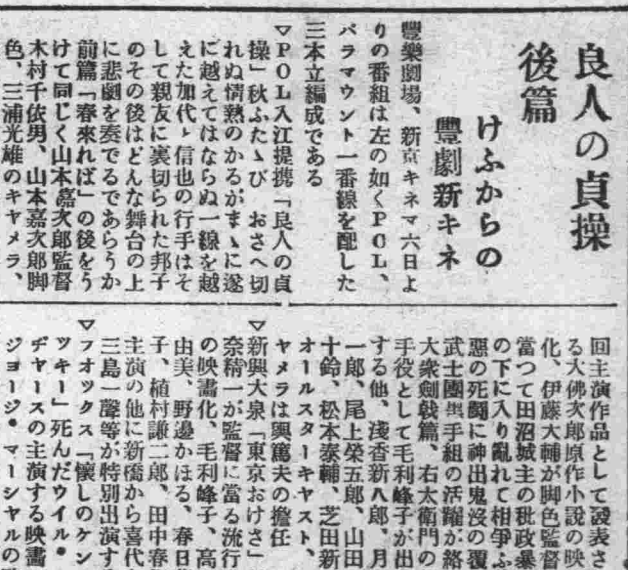 良人の貞操
後篇
けふからの
豐劇新キネ
豐樂劇場、新京キネマ六日よ
りの番組は左の如くPCL、
パラマウント一番線を配した
三本立編成である
▽PCL入江提携「良人の貞
操」秋ふたゝび おさへ切
れぬ情熱のかるがまゝに遂
に越えてはならぬ一線を越
えた加代、信也の行手はそ
して親友に裏切られた邦子
のその後はどんな舞台の上
に悲劇を奏でるであらうか
前篇「春來れば」の後をう
けて同じく山本嘉次郎監督
木村千依男、山本嘉次郎脚
色、三浦光雄のキヤメラ、
回主演作品として發表さ
る大佛次郎原作小說の映
化、伊藤大輔が脚色監督
當つて田沼城主の秕政暴
の下に入り亂れて相爭ふ
惡の死鬪に神出鬼沒の覆
武士團與手組の活躍が絡
大衆劍戟篇、右太衛門の
手役として毛利峰子が出
する他、淺香新八郎、月
一郎、尾上榮五郎、山田
十鈴、松本泰輔、芝田新
オールスターキヤスト、
ヤメラは興篤夫の擔任
▽新興大泉「東京おけさ」
奈精一が監督に當る流行
の映畫化、毛利峰子、高
由美、野邊かほる、春日
子、植村謙二郎、田中春
主演の他に新橋から喜代
三島一聲等が特別出演す
▽フオツクス「懷しのケン
ツキー」死んだウイル・
ヂヤースの主演する映畫
ジヨージ・マーシヤルの